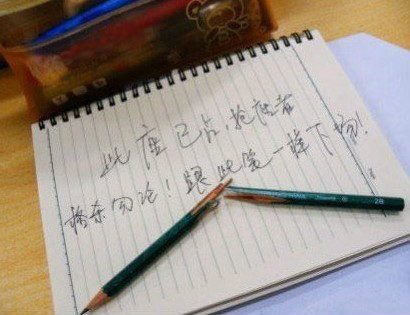 此座已占,抢座者
格杀勿论!跟此笔一样下场!
2B